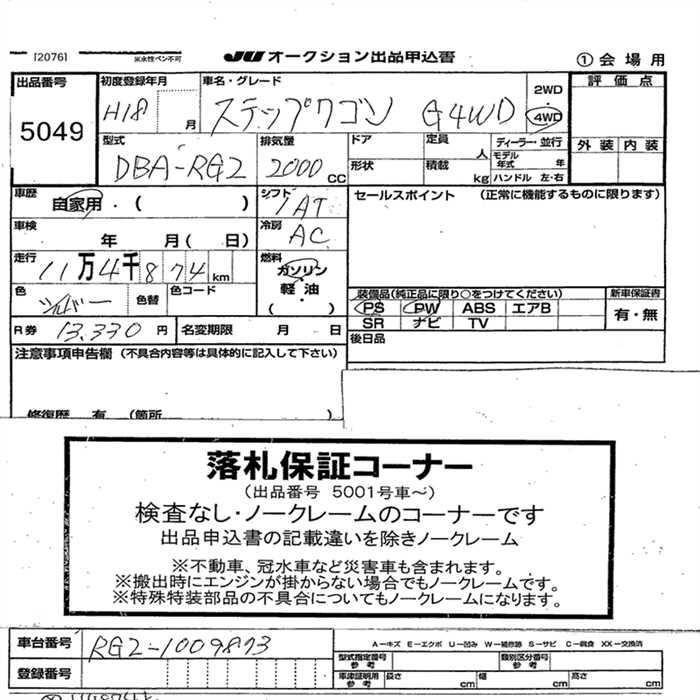 [2076] ※水性ペン不可 JU オークション出品申込書 ① 会場用
出品番号 初度登録年月 車名・グレード 2WD 評価点
5049 H18 月 ステップワゴン G4WD 4WD
型式 排気量 ドア 定員 人 ディーラー・並行 外装 内装
DBA-RG2 2000 CC 形状 積載 kg モデル年式 年 ハンドル 左・右
車歴 自家用・( ) シフト IAT セールスポイント (正常に機能するものに限ります)
車検 年 月( 日) 冷房 AC
走行 11万4千874km 燃料 ガソリン
軽油
( )
色 シルバー 色替 色コード 装備品(純正品に限り○をつけてください) 新車保証書
PS PW ABS エアB 有・無
SR ナビ TV
R券 13,330 円 名変期限 月 日 後日品
注意事項申告欄 (不具合内容等は具体的に記入して下さい)
修復歴 有 (箇所 )
落札保証コーナー
(出品番号 5001号車~)
検査なし・ノークレームのコーナーです
出品申込書の記載違いを除きノークレーム
※不動車、冠水車など災害車も含まれます。
※搬出時にエンジンが掛からない場合でもノークレームです。
※特殊特装部品の不具合についてもノークレームになります。
車台番号 RG2-1009873 A-キズ E-エクボ U-凹み W-補修跡 S-サビ C-腐食 XX-交換済
型式指定番号 参考 類別区分番号 参考
登録番号 車庫証明用 参考 長さ cm 幅 cm 高さ cm